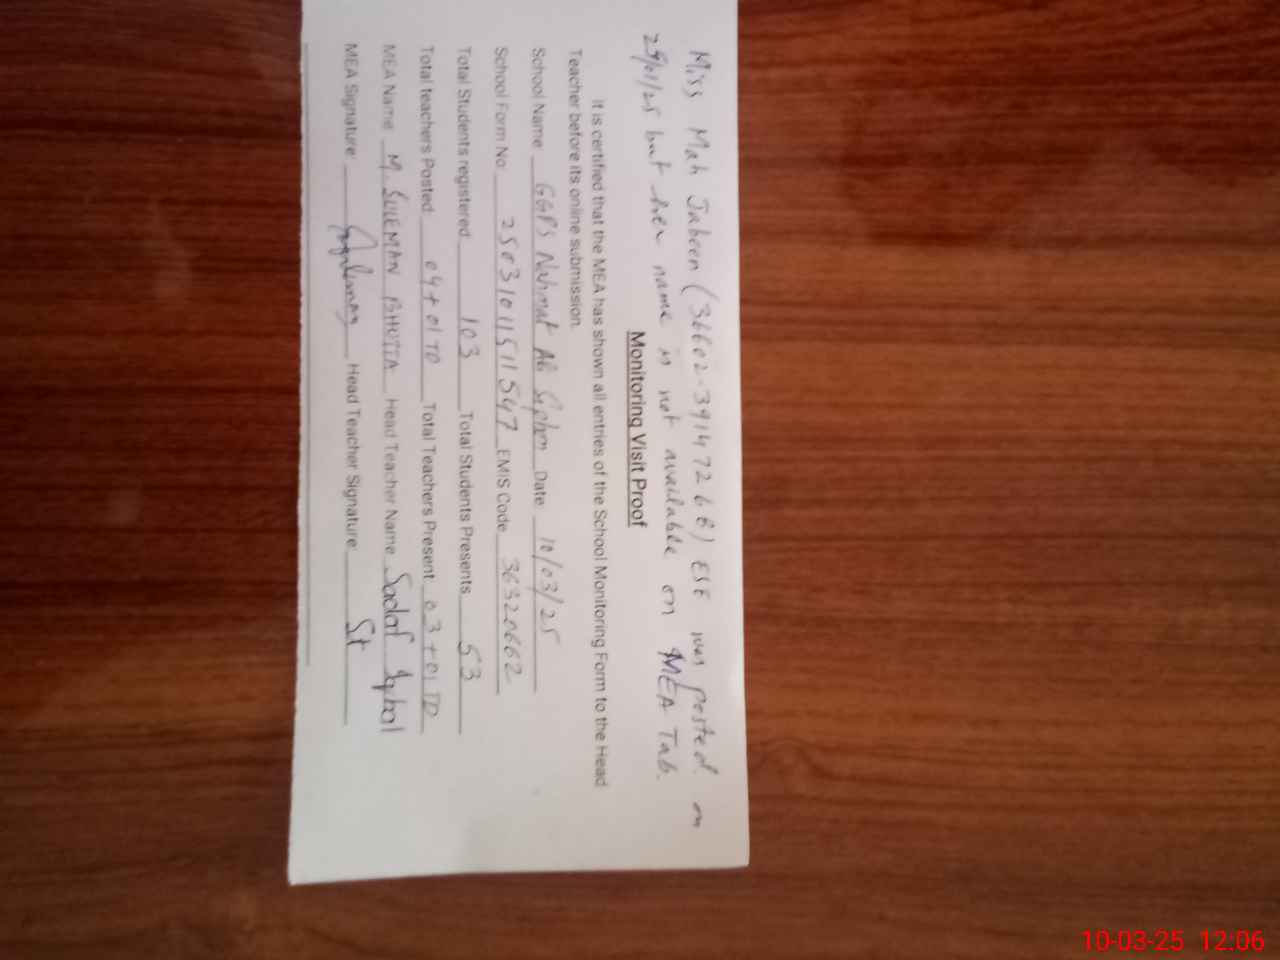 Miss Mah Jabeen (36602-3914726-8) ESE was posted on
29/01/25 but her name is not available on MEA Tab.
Monitoring Visit Proof
It is certified that the MEA has shown all entries of the School Monitoring Form to the Head
Teacher before its online submission.
School Name GGPS Nahmat Ali Date 10/03/25
School Form No. 25031011511547 EMIS Code 36320662
Total Students registered 103 Total Students Presents 53
Total teachers Posted 04+01TD Total Teachers Present 03+01TD
MEA Name M. SULEMAN BHUTTA Head Teacher Name Sadaf Iqbal
MEA Signature: Head Teacher Signature: St
10-03-25 12:06